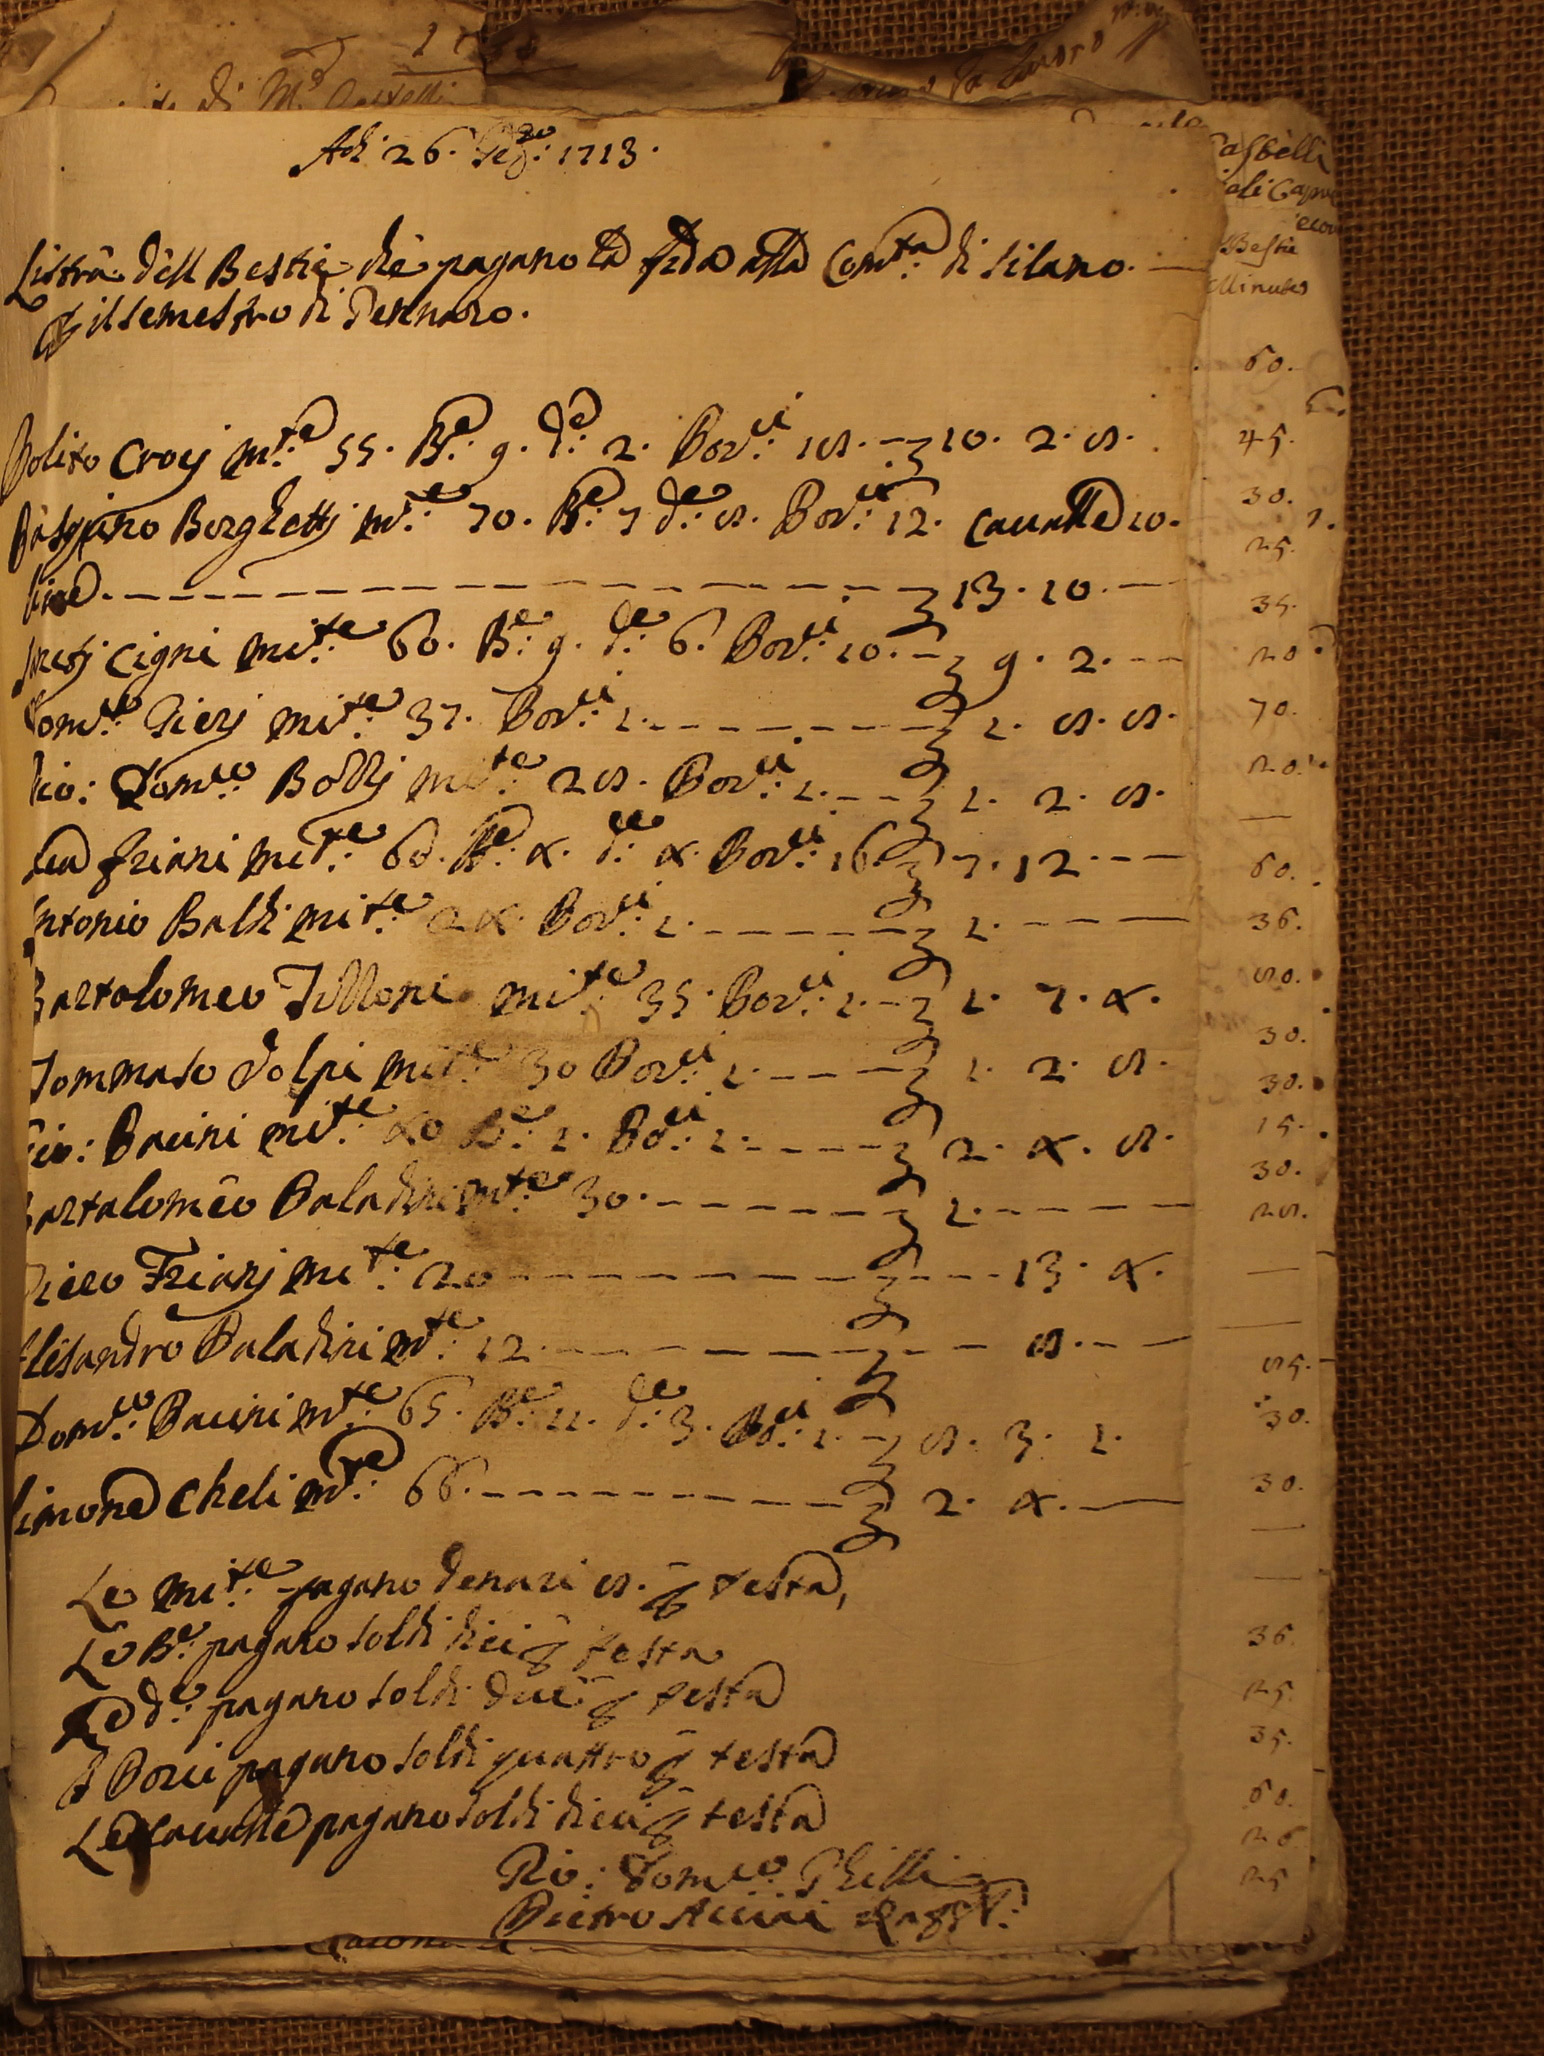 1758
di M.o Castelli
Adi 26. Gen.ro 1713.
Listra dell Bestie che pagano la fida alla Com.ta di Silano.
p il semestro di Gennaro.
Polito Crocj m.te 55. B.e 9. d.e 2. Por.ci 15. - 10. 2. 5.
Pasquino Borghettj m.te 70. B.e 7 d.e 5. Por.ci 12. Cavalle 10.
13. 10.
Cigni mi.te 60. B.e 9. d.e 6. Por.ci 10. - 9. 2.
Dom.co Pierj mi.te 37. Por.ci 1. 1. 5. 5.
Gio: Dom.co mi.te 25. Por.ci 1. 1. 2. 5.
friani mi.te 60. B.e 4. d.e 4. Por.ci 16. 7. 12.
Antonio Baldi mi.te 24. Por.ci 1. 1.
Bartolomeo mi.te 35. Por.ci 1. 1. 7. 4.
Tommaso Volpi mi.te 30 Por.ci 1. 1. 2. 5.
Gio: Pacini mi.te 40 B.e 1. Po.ci 1. 2. 4. 5.
Bartalomeo Paladini m.te 30. 1.
Piero Friani mi.te 20 13. 4.
Alisandro Paladini m.te 12. 5.
Dom.co Pacini m.te 65. B.e 11. d.e 3. Po.ci 1. - 5. 3. 1.
Simone Cheli m.te 66. 2. 4.
Le mi.te pagano denari 5. p testa,
Le B.e pagano soldi dieci p testa
Le d.e pagano soldi due p testa
I Porci pagano soldi quattro p testa
Le Cavalle pagano soldi dieci p testa
Gio: Dom.co
Pietro Accini
Castelli
Bestie
Minute
60.
45.
30.
25.
35.
20
70.
20.
60.
36.
50.
30.
30.
15.
30.
25.
55.
30.
30.
36.
25.
35.
60.
26
25